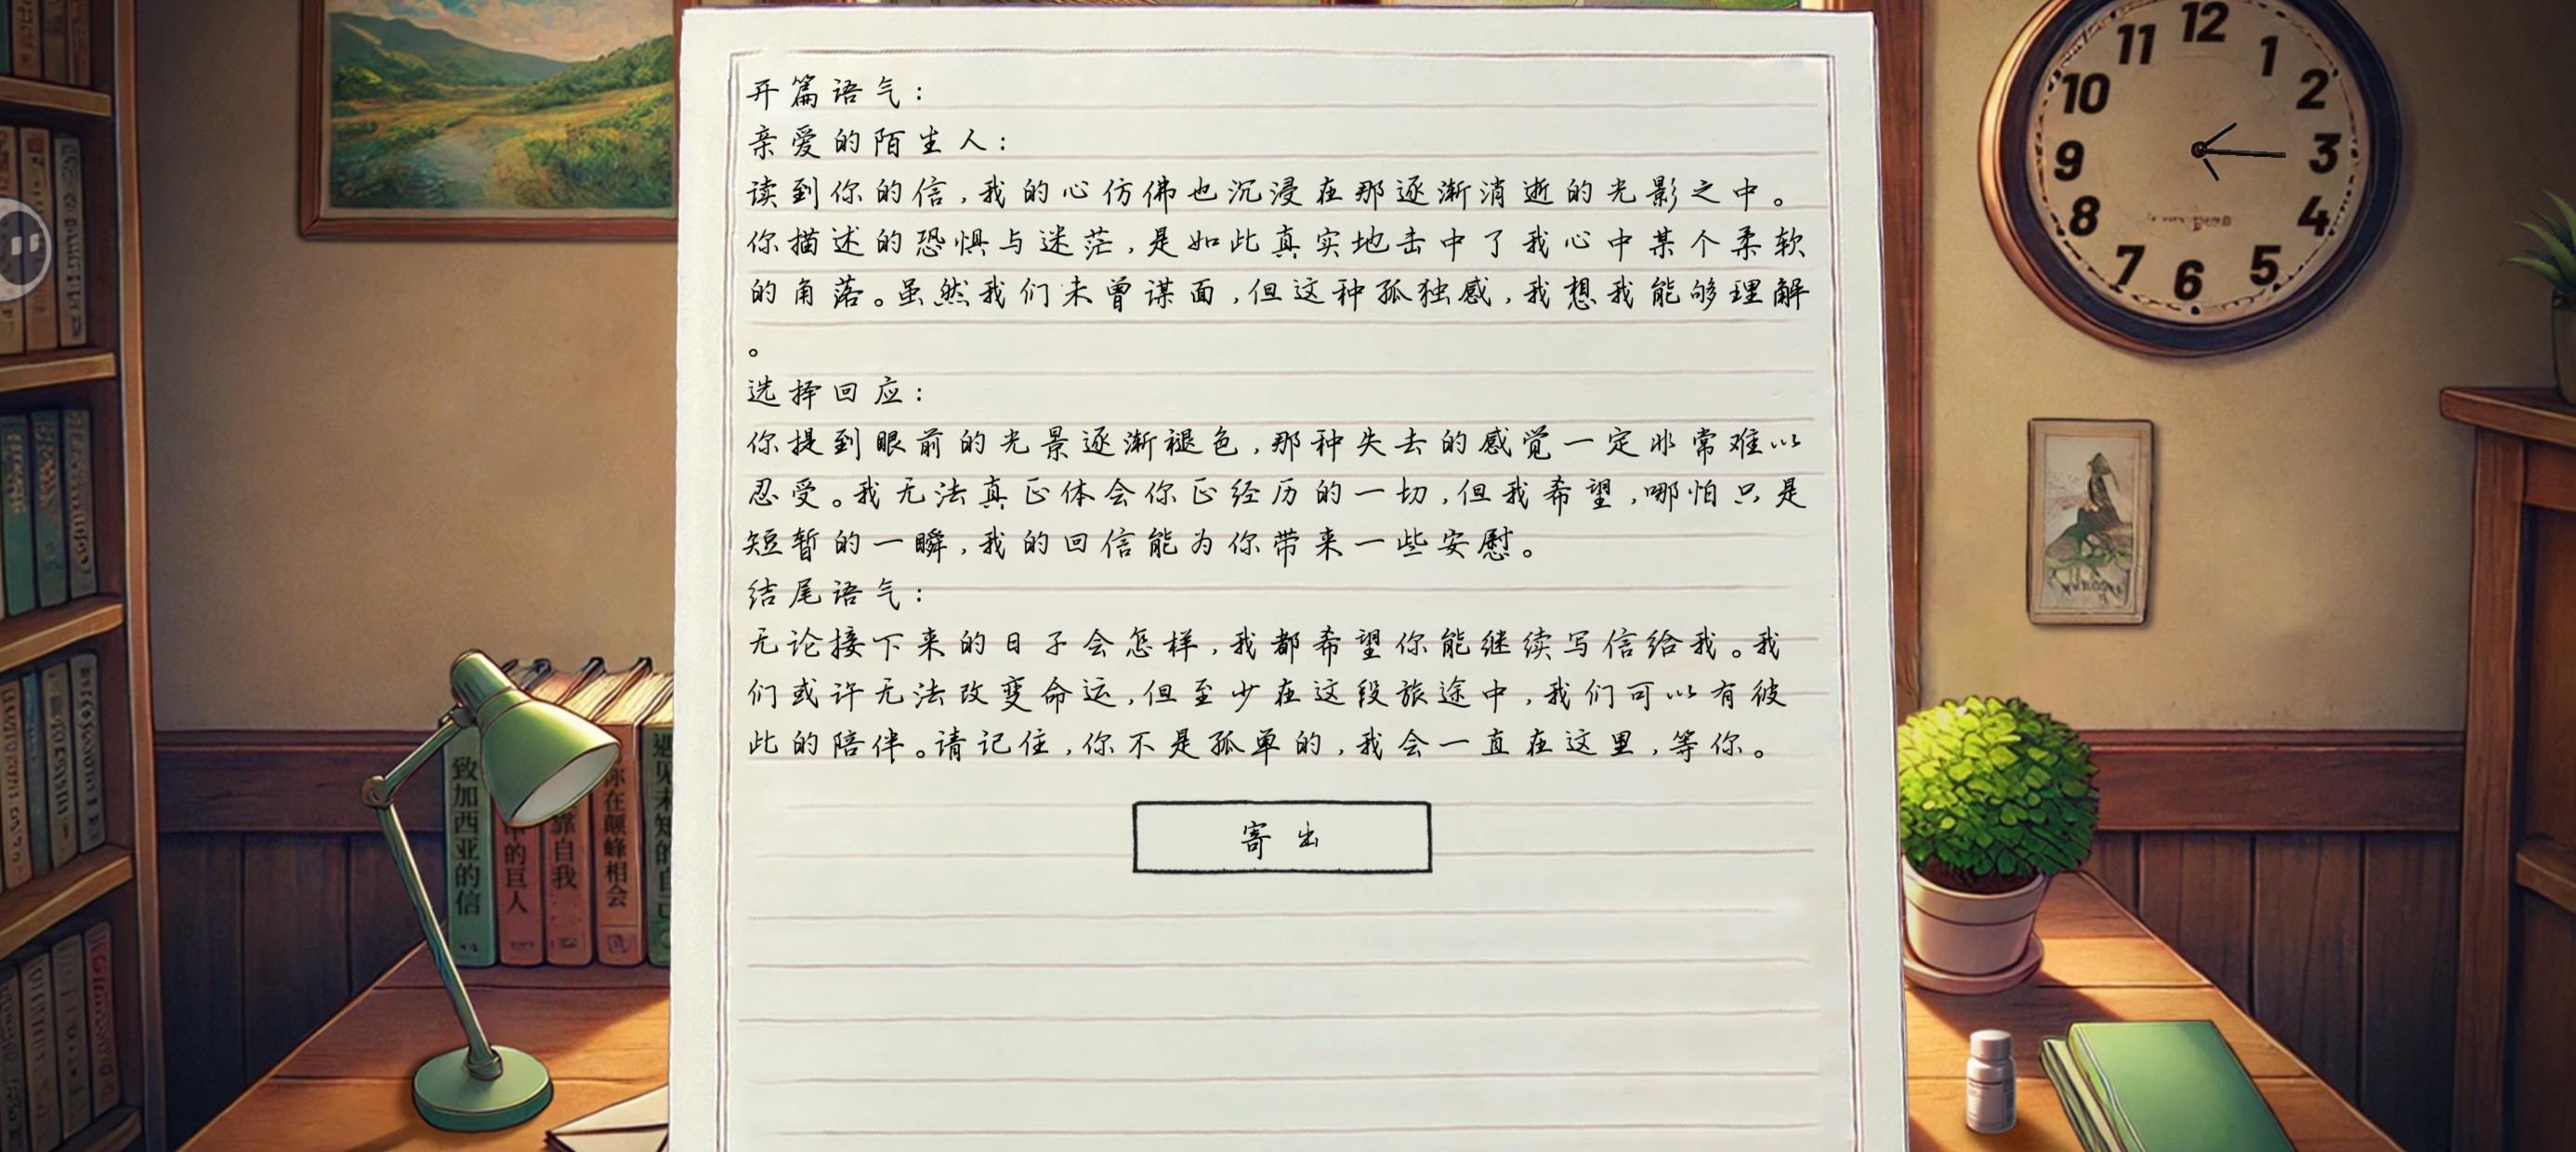 开篇语气：
亲爱的陌生人：
读到你的信，我的心仿佛也沉浸在那逐渐消逝的光影之中。
你描述的恐惧与迷茫，是如此真实地击中了我心中某个柔软
的角落。虽然我们未曾谋面，但这种孤独感，我想我能够理解
。
选择回应：
你提到眼前的光景逐渐褪色，那种失去的感觉一定非常难以
忍受。我无法真正体会你正经历的一切，但我希望，哪怕只是
短暂的一瞬，我的回信能为你带来一些安慰。
结尾语气：
无论接下来的日子会怎样，我都希望你能继续写信给我。我
们或许无法改变命运，但至少在这段旅途中，我们可以有彼
此的陪伴。请记住，你不是孤单的，我会一直在这里，等你。
寄出
致加西亚的信
的巨人
靠自我
你在颠峰相会
遇见未知的自己
12
1
2
3
4
5
6
7
8
9
10
11